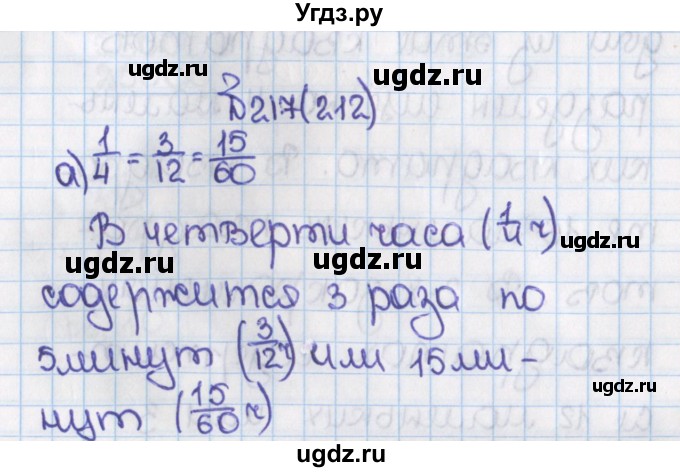 Угдз.ру
ugdz.ru ugdz.ru
217(212)
а) 1/4 = 3/12 = 15/60
ugdz.ru
В четверти часа (1/4 ч)
ugdz.ru ugdz.ru
содержится 3 раза по
5 минут (3/12 ч) или 15 ми-
ugdz.ru ugdz.ru
нут (15/60 ч)
ugdz.ru